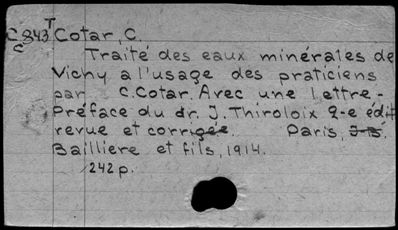 T
C843 Cotar, C.
C
Traité des eaux minérales de
Vichy a l'usage des praticiens
par C.Cotar. Avec une lettre-
Préface du dr. J. Thiroloix 2-e édit
revue et corrigée. Paris, J-B.
Bailliere et fils, 1914.
242 p.